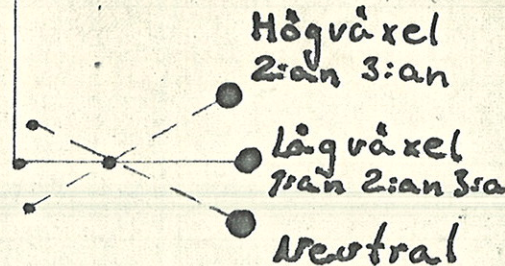 Högväxel
2:an 3:an
Lågväxel
1:an 2:an 3:a
Neutral